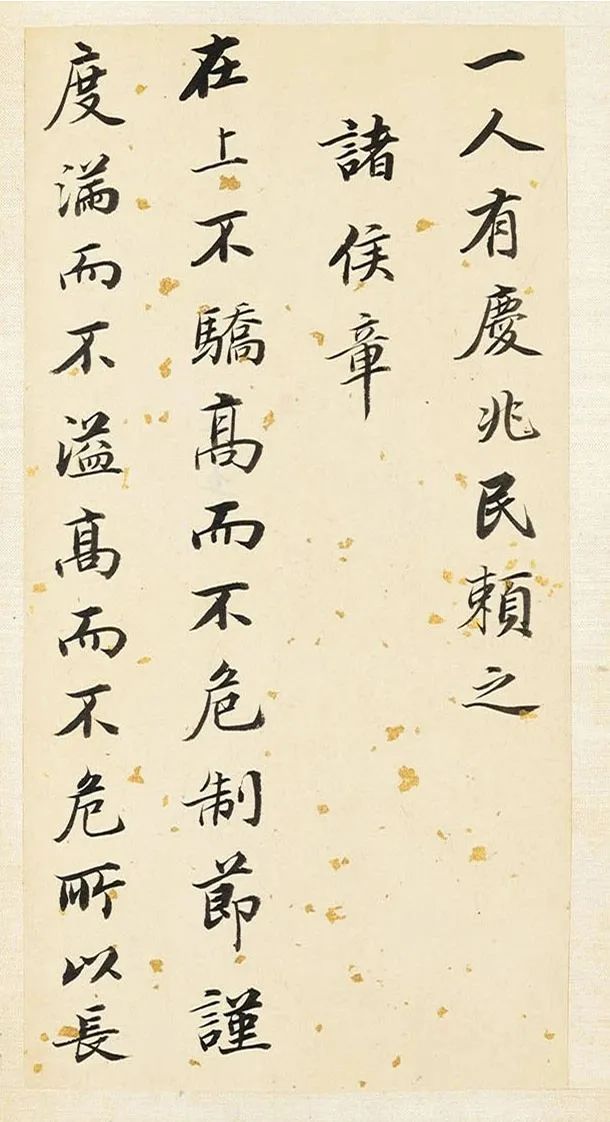 一人有慶兆民賴之
諸侯章
在上不驕高而不危制節謹
度滿而不溢高而不危所以長